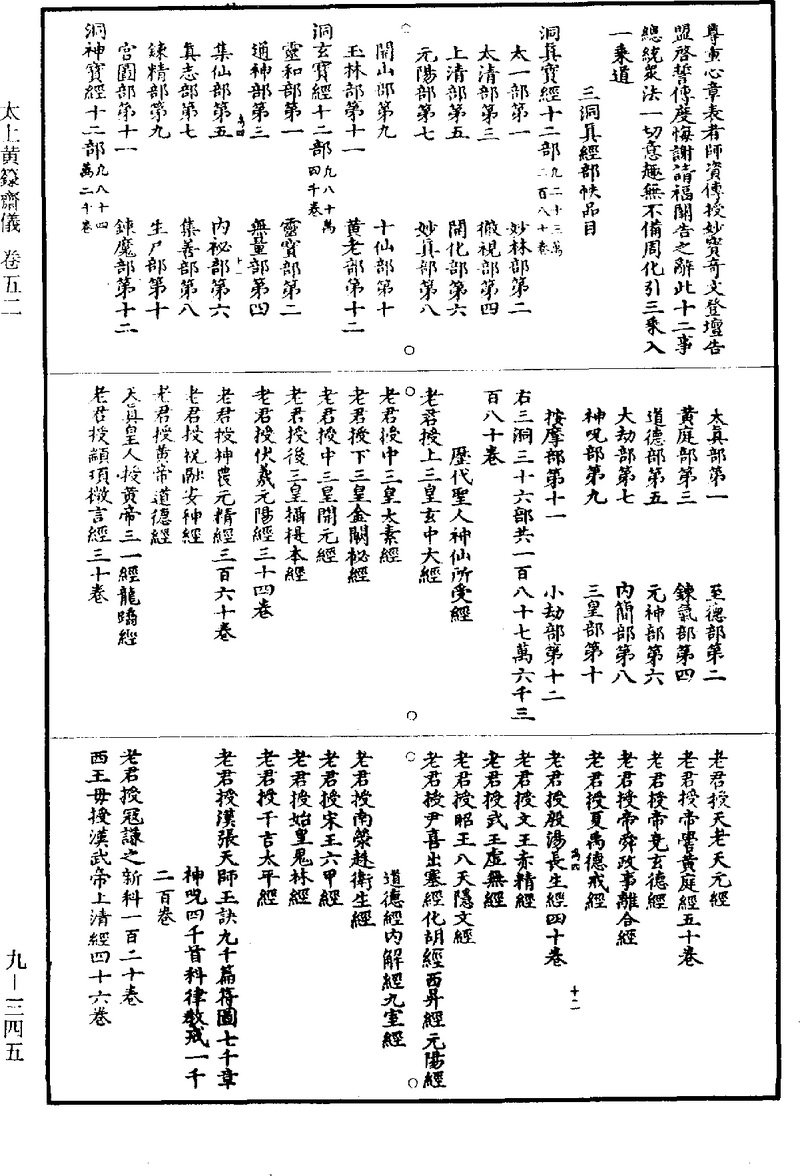 尊重心章表者師資傳授妙寶奇文登壇告
盟啓誓傳度悔謝請福關告之辭此十二事
總統衆法一切意趣無不備周化引三乘入
一乘道
三洞真經部帙品目
洞真寶經十二部九二十三萬二百八十卷
太一部第一　妙林部第二
太清部第三　徹視部第四
上清部第五　開化部第六
元陽部第七　妙真部第八
開山部第九　十仙部第十
玉林部第十一　黃老部第十二
洞玄寶經十二部九八十萬四千卷
靈和部第一　靈寶部第二
通神部第三　無量部第四
集仙部第五　內祕部第六
真志部第七　集善部第八
鍊精部第九　生尸部第十
宮圖部第十一　鍊魔部第十二
洞神寶經十二部九八十四萬二千卷
太真部第一　至德部第二
黃庭部第三　鍊氣部第四
道德部第五　元神部第六
大劫部第七　內簡部第八
神呪部第九　三皇部第十
按摩部第十一　小劫部第十二
右三洞三十六部共一百八十七萬六千三
百八十卷
歷代聖人神仙所受經
老君授上三皇玄中大經
老君授中三皇太素經
老君授下三皇金闕祕經
老君授中三皇開元經
老君授後三皇攝提本經
老君授伏羲元陽經三十四卷
老君授神農元精經三百六十卷
老君授祝融安神經
老君授黃帝道德經
天真皇人授黃帝三一經龍蹻經
老君授顓頊微言經三十卷
老君授天老天元經
老君授帝嚳黃庭經五十卷
老君授帝堯玄德經
老君授帝舜政事離合經
老君授夏禹德戒經
老君授殷湯長生經四十卷
老君授文王赤精經
老君授武王虛無經
老君授昭王八天隱文經
老君授尹喜出塞經化胡經西昇經元陽經
道德經內解經九室經
老君授南榮趎衛生經
老君授宋王六甲經
老君授始皇鬼林經
老君授干吉太平經
老君授漢張天師玉訣九千篇符圖七千章
神呪四千首科律教戒一千
二百卷
老君授寇謙之新科一百二十卷
西王母授漢武帝上清經四十六卷
太上黃籙齋儀　卷五二
九—三四五